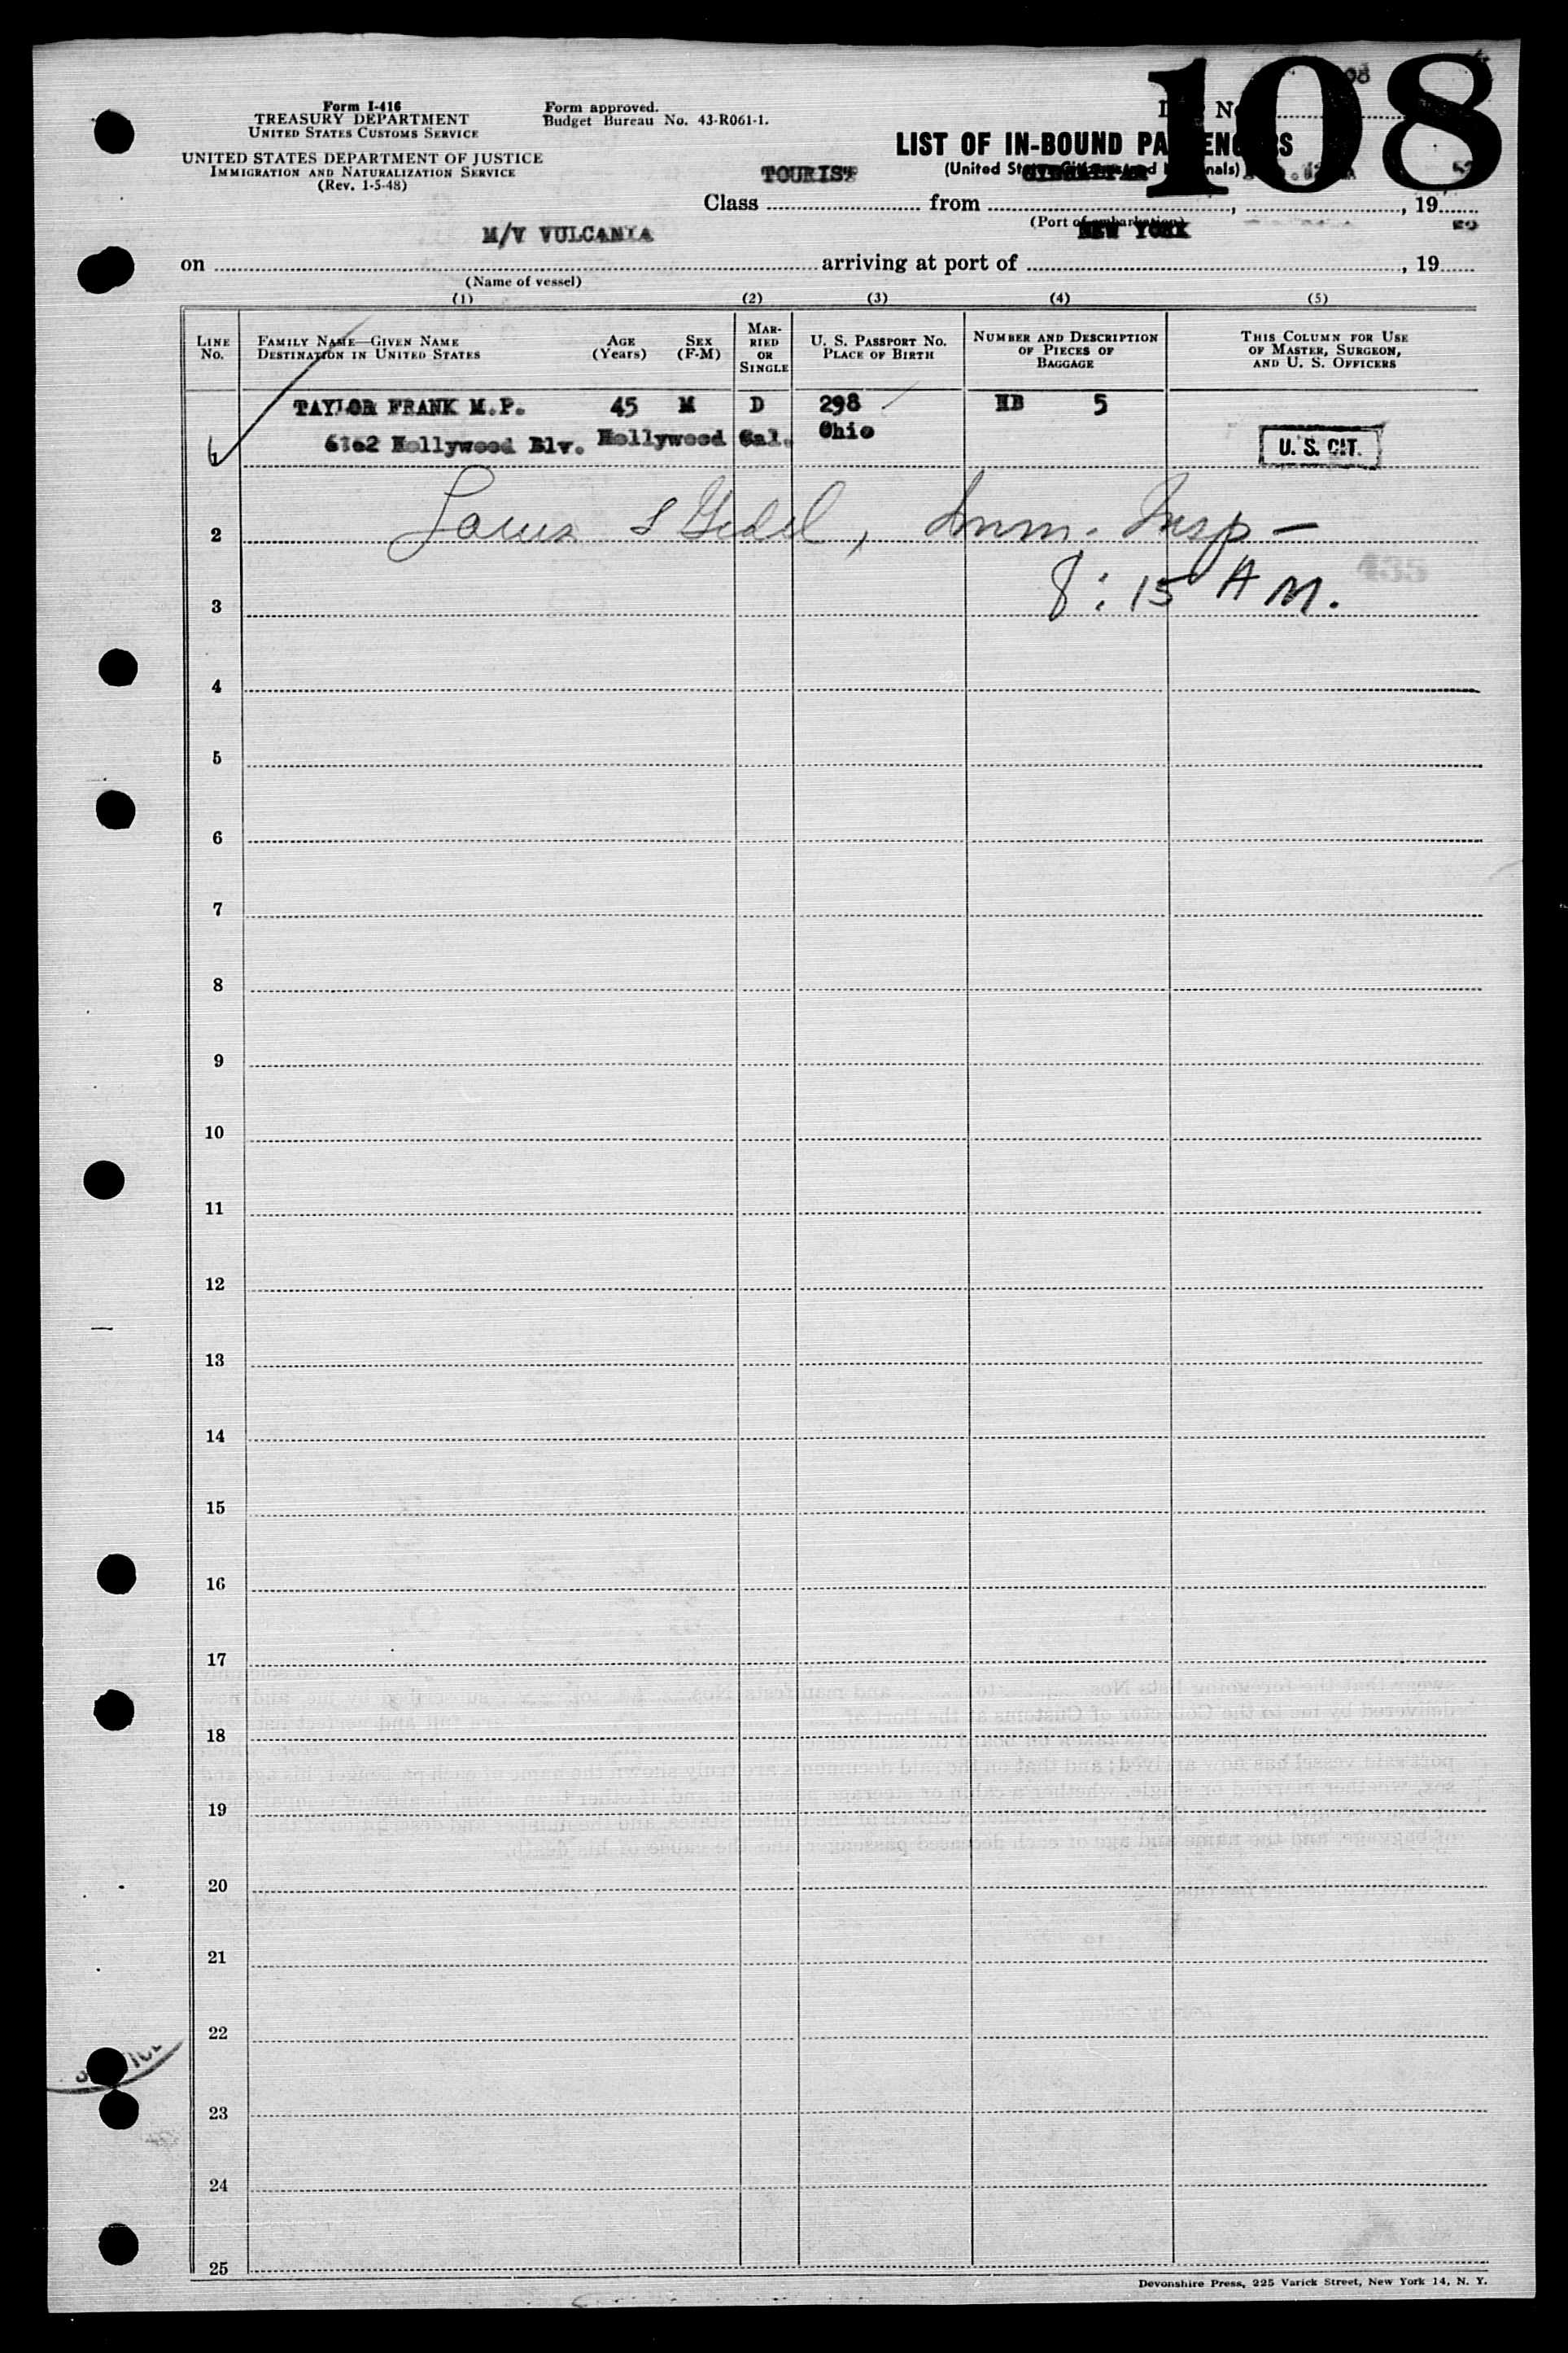 108
Form I-416
TREASURY DEPARTMENT
UNITED STATES CUSTOMS SERVICE
UNITED STATES DEPARTMENT OF JUSTICE
IMMIGRATION AND NATURALIZATION SERVICE
(Rev. 1-5-48)
Form approved.
Budget Bureau No. 43-R061-1.
LIST OF IN-BOUND PASSENGERS
(United States Citizens and Nationals)
TOURIST
Class from , , 19
(Port of embarkation)
M/V VULCANIA NEW YORK
on arriving at port of , 19
(Name of vessel)
(1) (2) (3) (4) (5)
LINE No. FAMILY NAME—GIVEN NAME DESTINATION IN UNITED STATES AGE (Years) SEX (F-M) MARRIED OR SINGLE U. S. PASSPORT No. PLACE OF BIRTH NUMBER AND DESCRIPTION OF PIECES OF BAGGAGE THIS COLUMN FOR USE OF MASTER, SURGEON, AND U. S. OFFICERS
TAYLOR FRANK M.P. 45 M D 298 HB 5
1 Hollywood Blv. Hollywood Cal. Ohio U. S. CIT.
2 Imm. Insp —
3 8:15 AM.
4
5
6
7
8
9
10
11
12
13
14
15
16
17
18
19
20
21
22
23
24
25
Devonshire Press, 225 Varick Street, New York 14, N. Y.